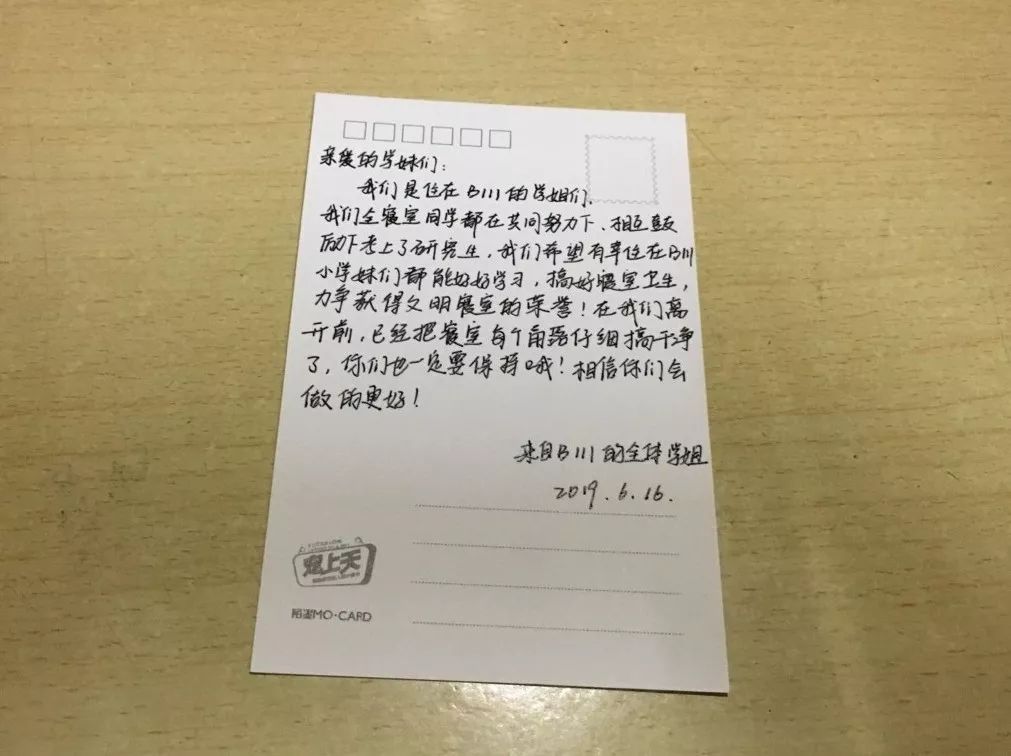 亲爱的学妹们：
我们是住在B111的学姐们.
我们全寝室同学都在共同努力下、相互鼓
励下考上了研究生，我们希望有幸住在B111
小学妹们都能好好学习，搞好寝室卫生，
力争获得文明寝室的荣誉！在我们离
开前，已经把寝室每个角落仔细搞干净
了，你们也一定要保持哦！相信你们会
做的更好！
来自B111的全体学姐
2019.6.16.
上天
MO·CARD